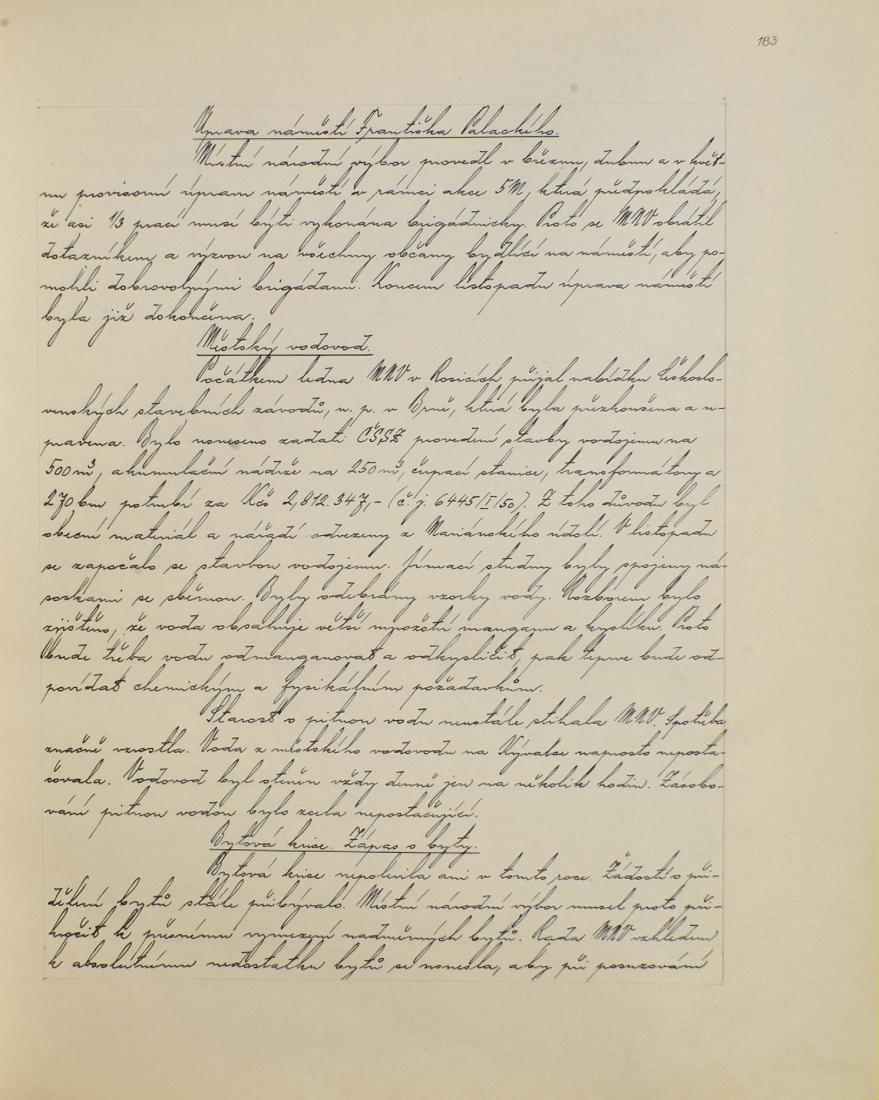 183
Úprava náměstí Františka Palackého.
Místní národní výbor provedl v březnu, dubnu a v květ-
nu provisorní úpravu náměstí v rámci akce 5M, která předpokládá,
že asi 1/3 prací musí býti vykonána brigádnicky. Proto se MNV obrátil
dotazníkem a výzvou na všechny občany bydlící na náměstí, aby po-
mohli dobrovolnými brigádami. Koncem listopadu úprava náměstí
byla již dokončena.
Městský vodovod.
Počátkem ledna MNV v Rosicích přijal nabídku Českoslo-
venských stavebních závodů, n. p. v Brně, která byla přezkoušena a u-
pravena. Bylo usneseno zadati ČSSZ provedení stavby vodojemu na
500 m³, akumulační nádrže na 250 m³, čerpací stanice, transformátoru a
270 bm potrubí za Kčs 2,812.347,- (č. j. 6445/I/50). Z toho důvodu byl
obecní materiál a nářadí odvezeny z Mariánského údolí. V listopadu
se započalo se stavbou vodojemu. Jímací studny byly spojeny ná-
soskami se sběrnou. Byly odebrány vzorky vody. Rozborem bylo
zjištěno, že voda obsahuje větší množství manganu a kyslíku. Proto
bude třeba vodu odmanganovat a odkysličit, pak teprve bude od-
povídat chemickým a fysikálním požadavkům.
Starost o pitnou vodu neustále stíhala MNV. Spotřeba
značně vzrostla. Voda z městského vodovodu na Kývalce naprosto neposta-
čovala. Vodovod byl otevřen vždy denně jen na několik hodin. Zásobo-
vání pitnou vodou bylo zcela nepostačující.
Bytová krise. Zápas o byty.
Bytová krise nepolevila ani v tomto roce. Žádostí o při-
dělení bytů stále přibývalo. Místní národní výbor musel proto při-
kročit k přesnému vymezení nadměrných bytů. Rada MNV vzhledem
k absolutnímu nedostatku bytů se usnesla, aby při posuzování